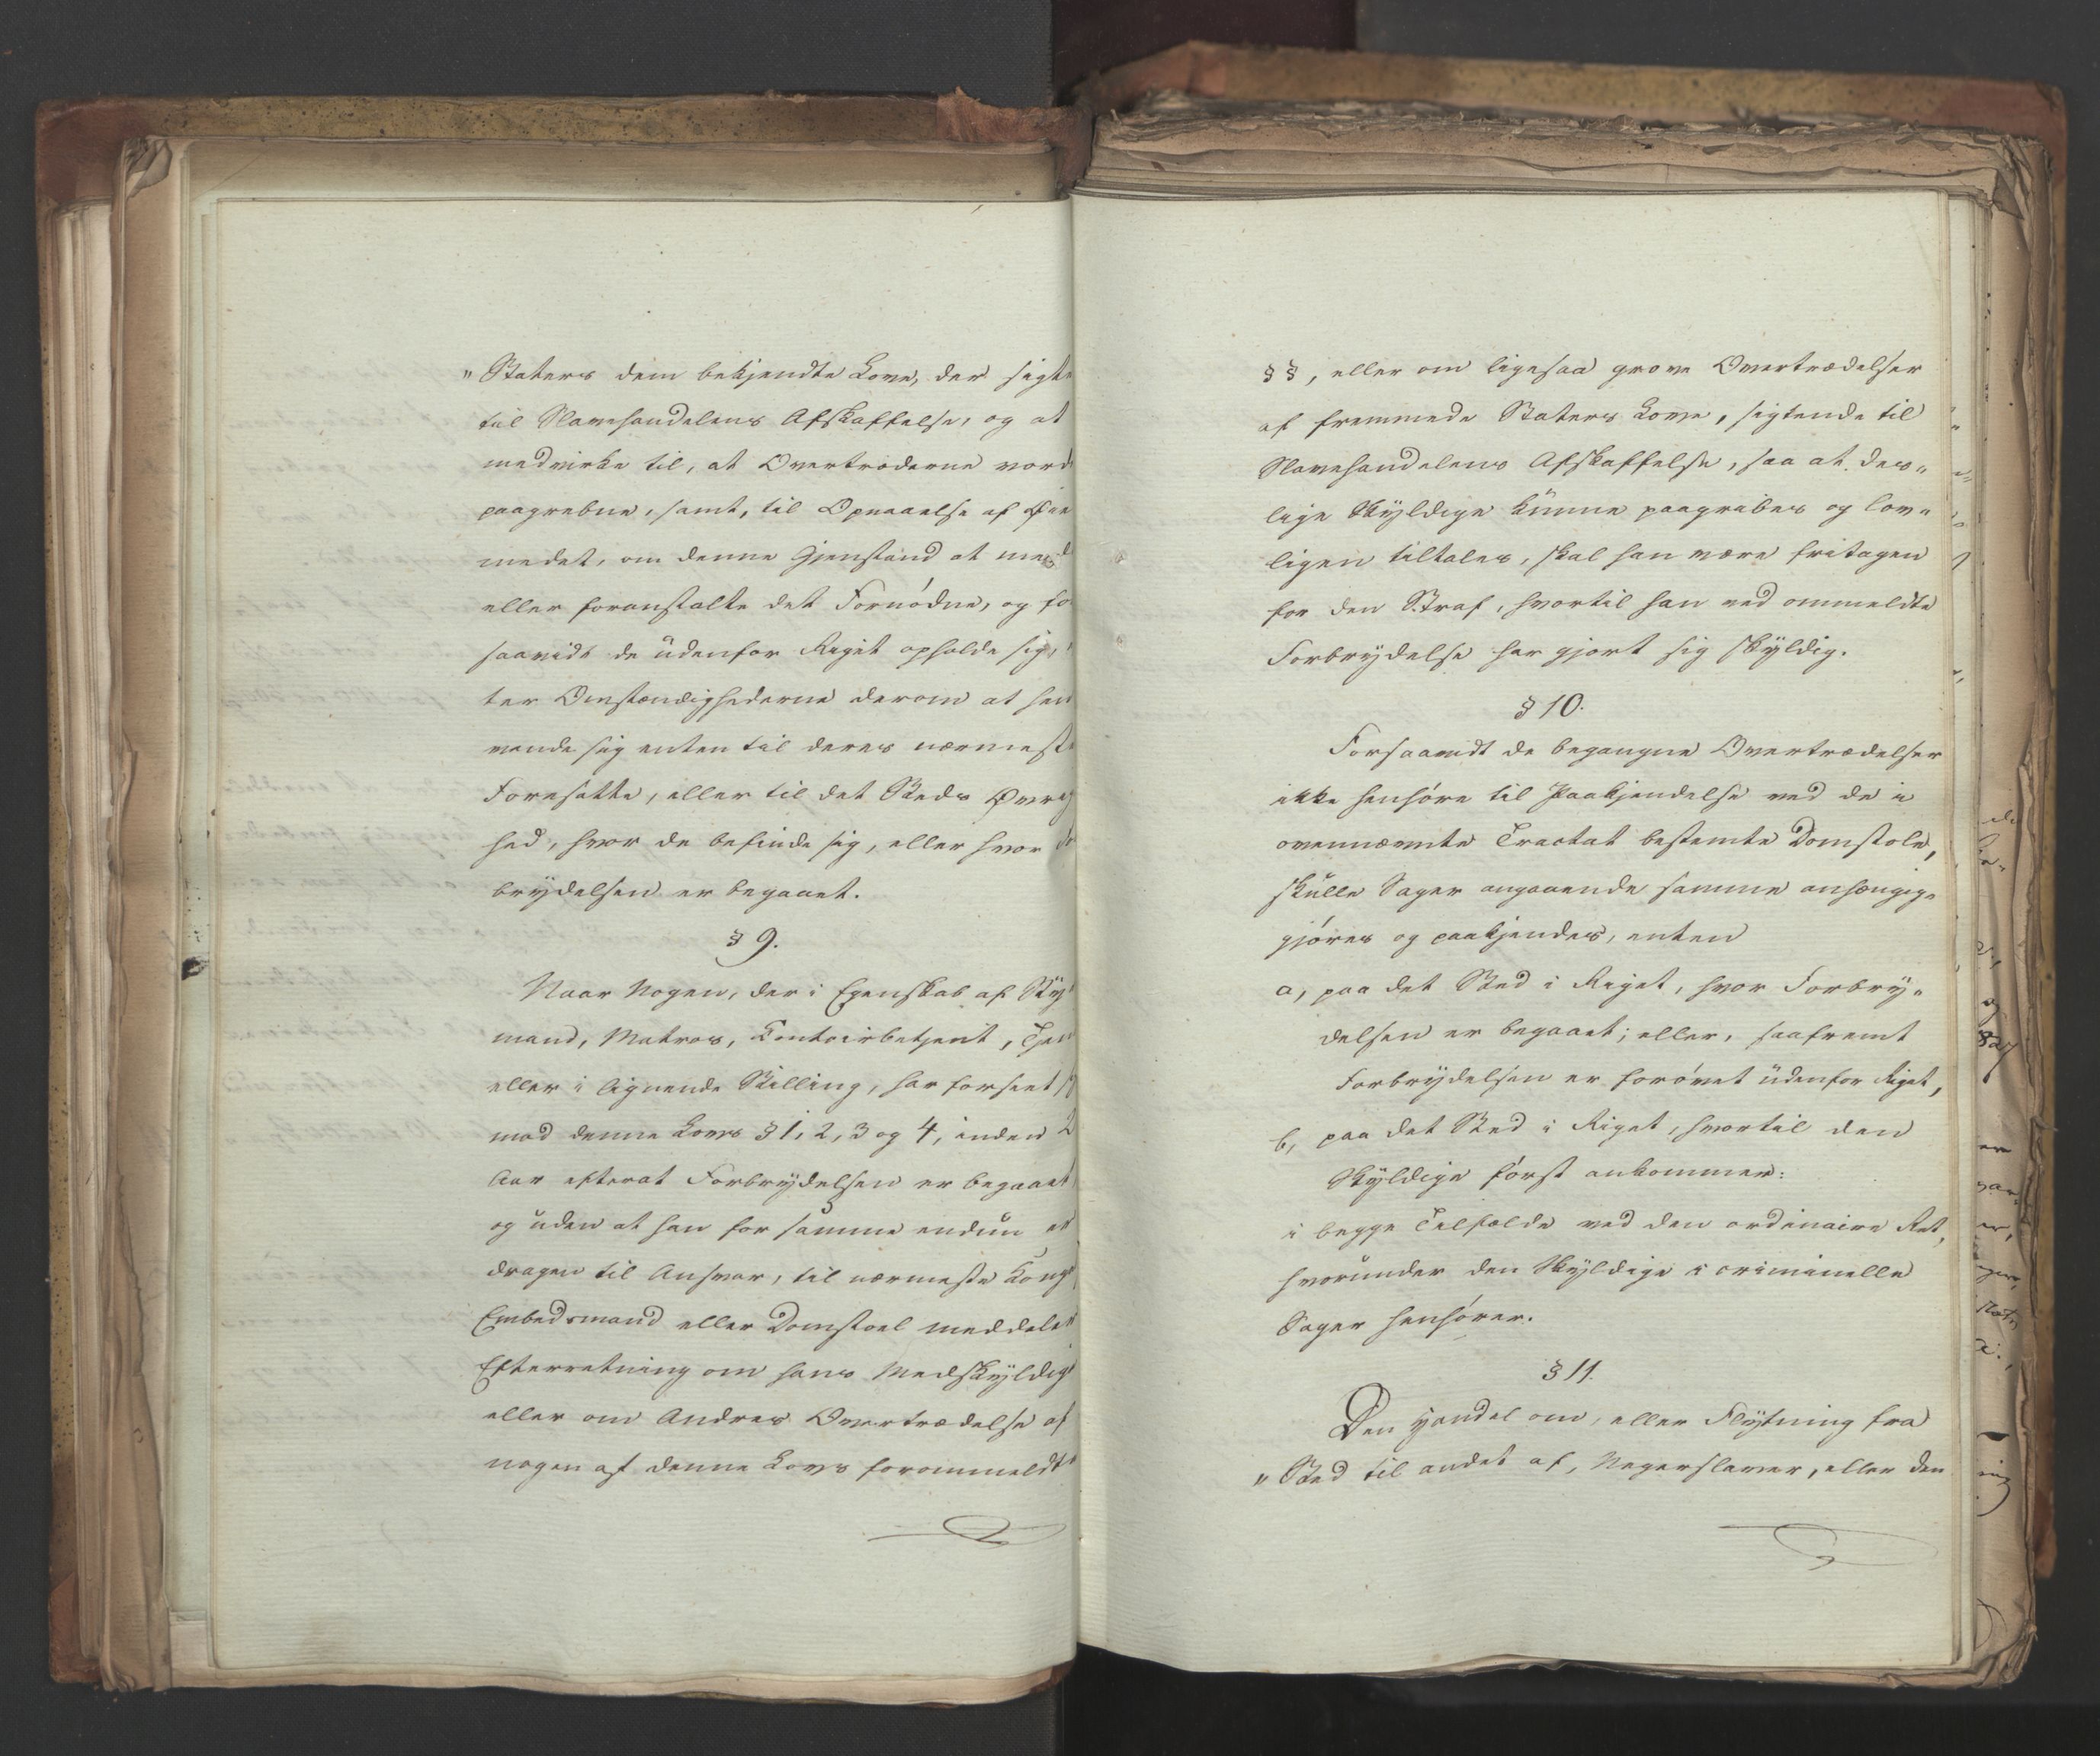 „Staters dem bekjendte Love, der sigte
til Slavehandelens Afskaffelse, og at
medvirke til, at Overtræderne vorde
paagrebne, samt, til Opnaaelse af Øie
medet, om denne Gjenstand at med
eller foranstalte det Fornödne, og for
saavidt de üdenfor Riget opholde sig,
ter Omstændighederne derom at hen
vende sig enten til deres nærmeste
Foresatte, eller til det Steds Øvrig
hed, hvor de befinde sig, eller hvor For
brÿdelsen er begaaet.
§ 9.
Naar Nogen, der i Egenskab af Stÿr
mand, Matros, Contoirbetjent, Tjen
eller i lignende Stilling, har forseet sig
mod denne Lovs § 1, 2, 3 og 4, inden 2
Aar efterat Forbrÿdelsen er begaaet
og üden at han for samme endnü er
dragen til Ansvar, til nærmeste Kong
Embedsmand eller Domstoel meddeler
Efterretning om hans Medskÿldige
eller om Andres Overtrædelse af
nogen af denne Lovs forommeldte
§§, eller om ligesaa grove Overtrædelser
af fremmede Staters Love, sigtende til
Slavehandelens Afskaffelse, saa at des„
lige Skÿldige künne paagribes og lov„
ligen tiltales, skal han være fritagen
for den Straf, hvortil han ved ommeldte
Forbrÿdelse har gjort sig skÿldig.
§ 10.
Forsaavidt de begangne Overtrædelser
ikke henhöre til Paakjendelse ved de i
ovennævnte Tractat bestemte Domstole,
skülle Sager angaaende samme anhængig„
gjöres og paakjendes, enten
a, paa det Sted i Riget, hvor Forbrÿ„
delsen er begaaet; eller, saafremt
Forbrÿdelsen er forövet üdenfor Riget,
b, paa det Sted i Riget, hvortil den
Skÿldige först ankommer:
i begge Tilfælde ved den ordinaire Ret,
hvoründer den Skÿldige i criminelle
Sager henhörer.
§ 11.
Den Handel om, eller Flÿtning fra
„Sted til andet af, Negerslaver, eller den